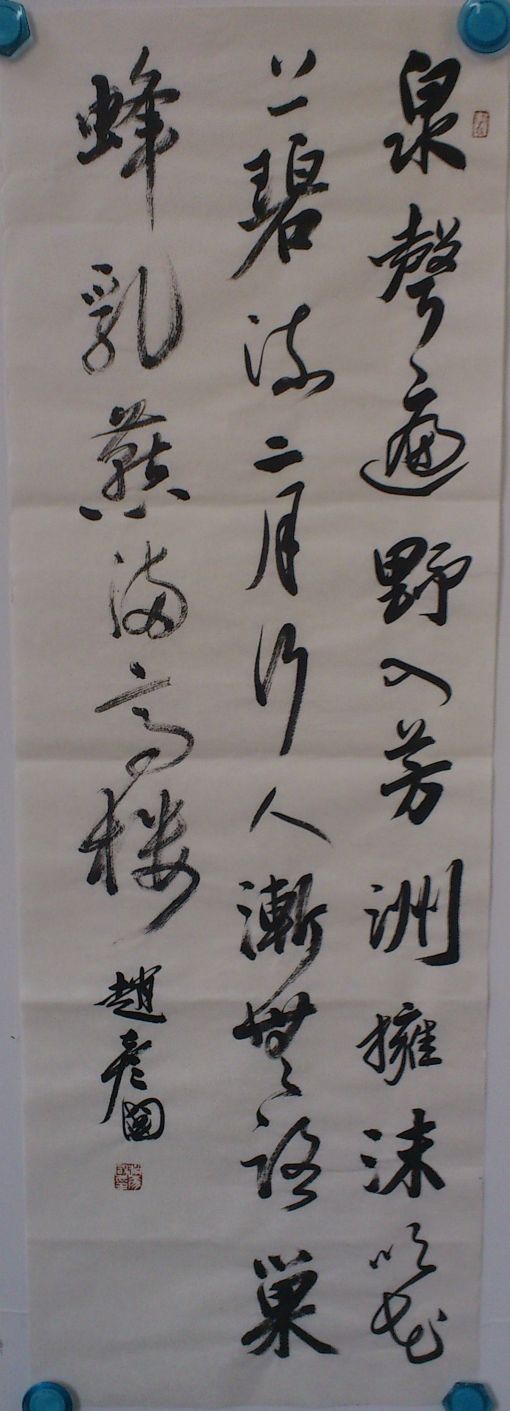 泉聲遍野入芳洲擁沫吹花
上碧流二月行人漸無路巢
蜂乳燕滿高樓
趙彥國